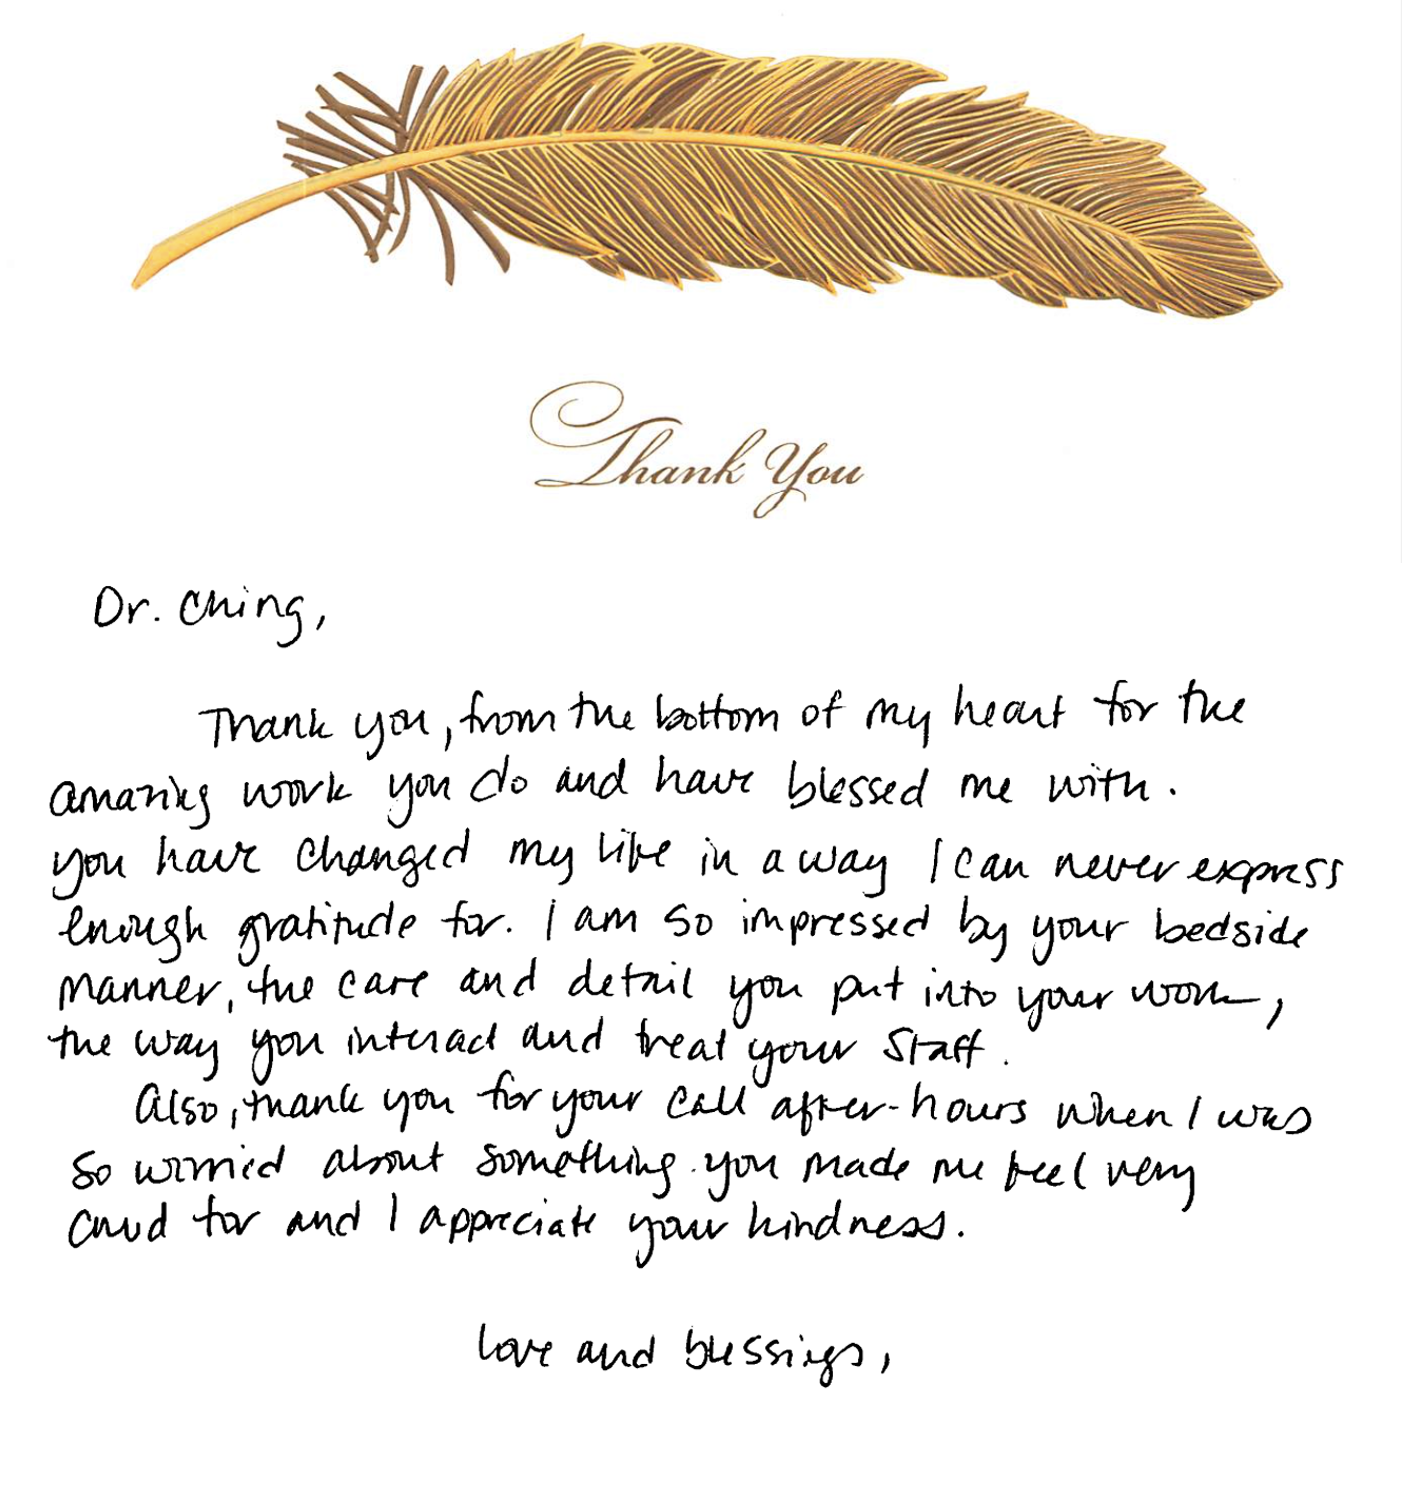 Thank You
Dr. Ching,
Thank you, from the bottom of my heart for the
amazing work you do and have blessed me with.
you have changed my life in a way I can never express
enough gratitude for. I am so impressed by your bedside
manner, the care and detail you put into your work,
the way you interact and treat your staff.
Also, thank you for your call after-hours when I was
so worried about something. you made me feel very
cared for and I appreciate your kindness.
love and blessings,